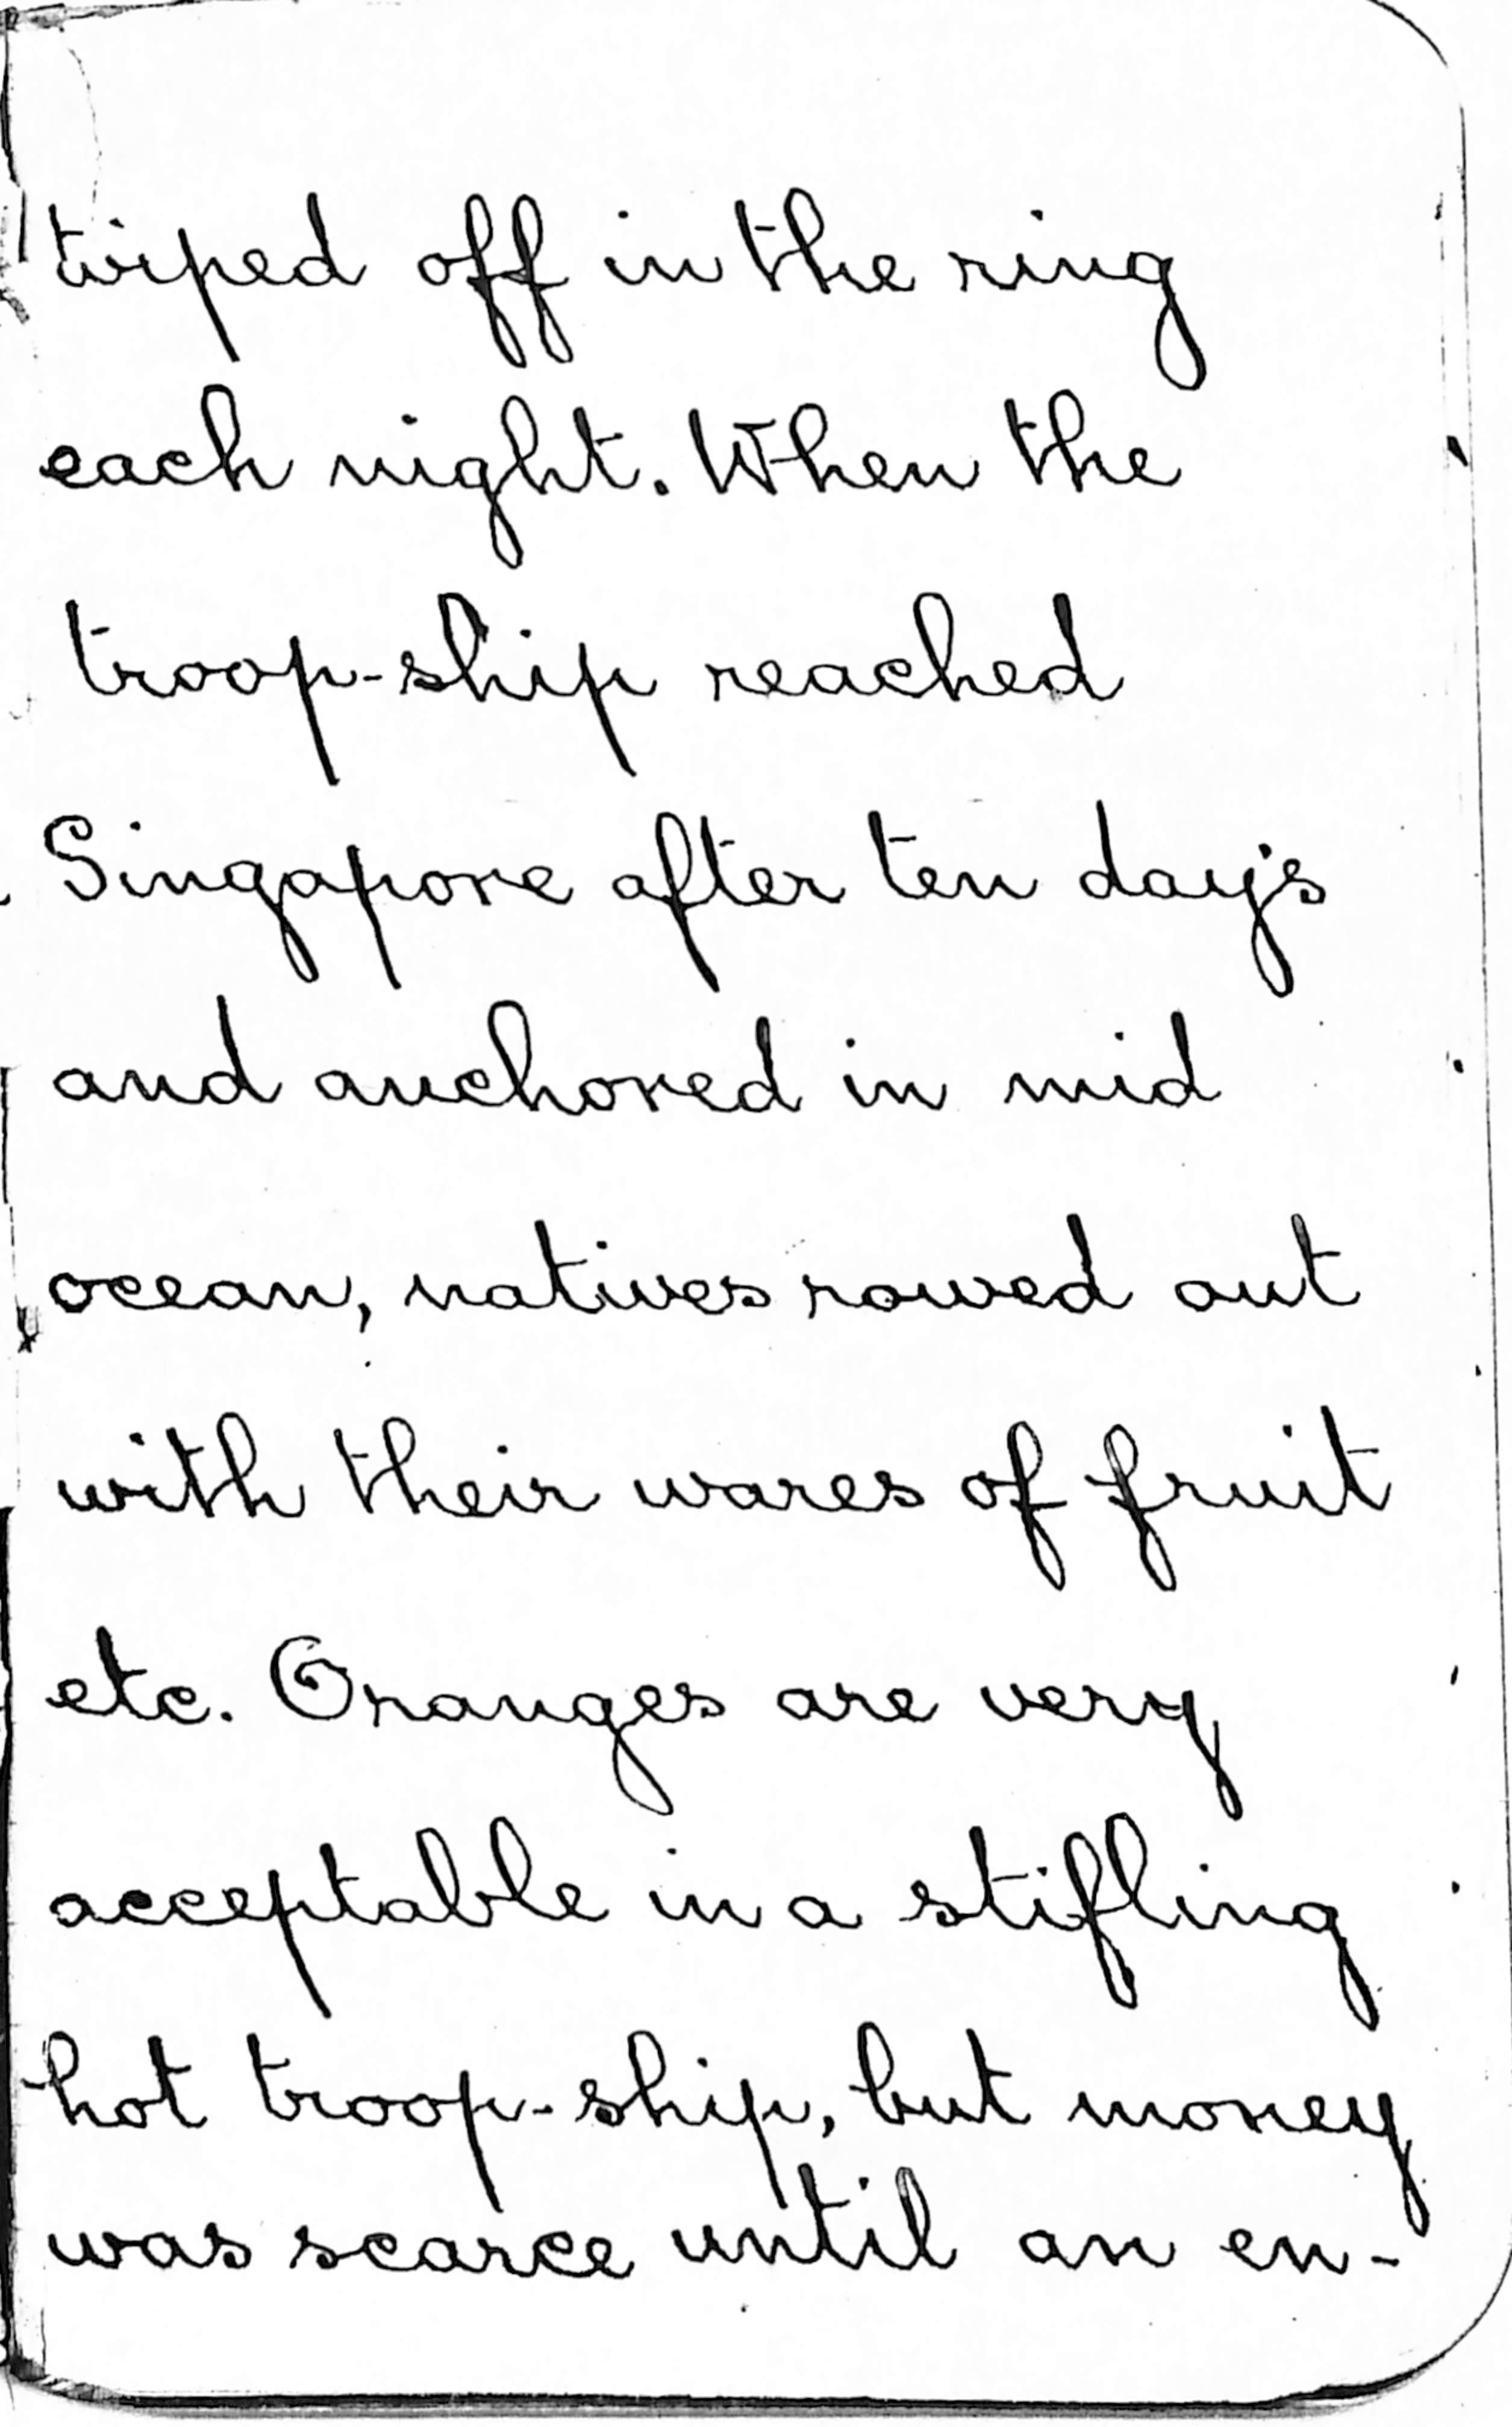 wiped off in the ring
each night. When the
troop-ship reached
Singapore after ten day's
and anchored in mid
ocean, natives rowed out
with their wares of fruit
etc. Oranges are very
acceptable in a stifling
hot troop-ship, but money
was scarce until an en-